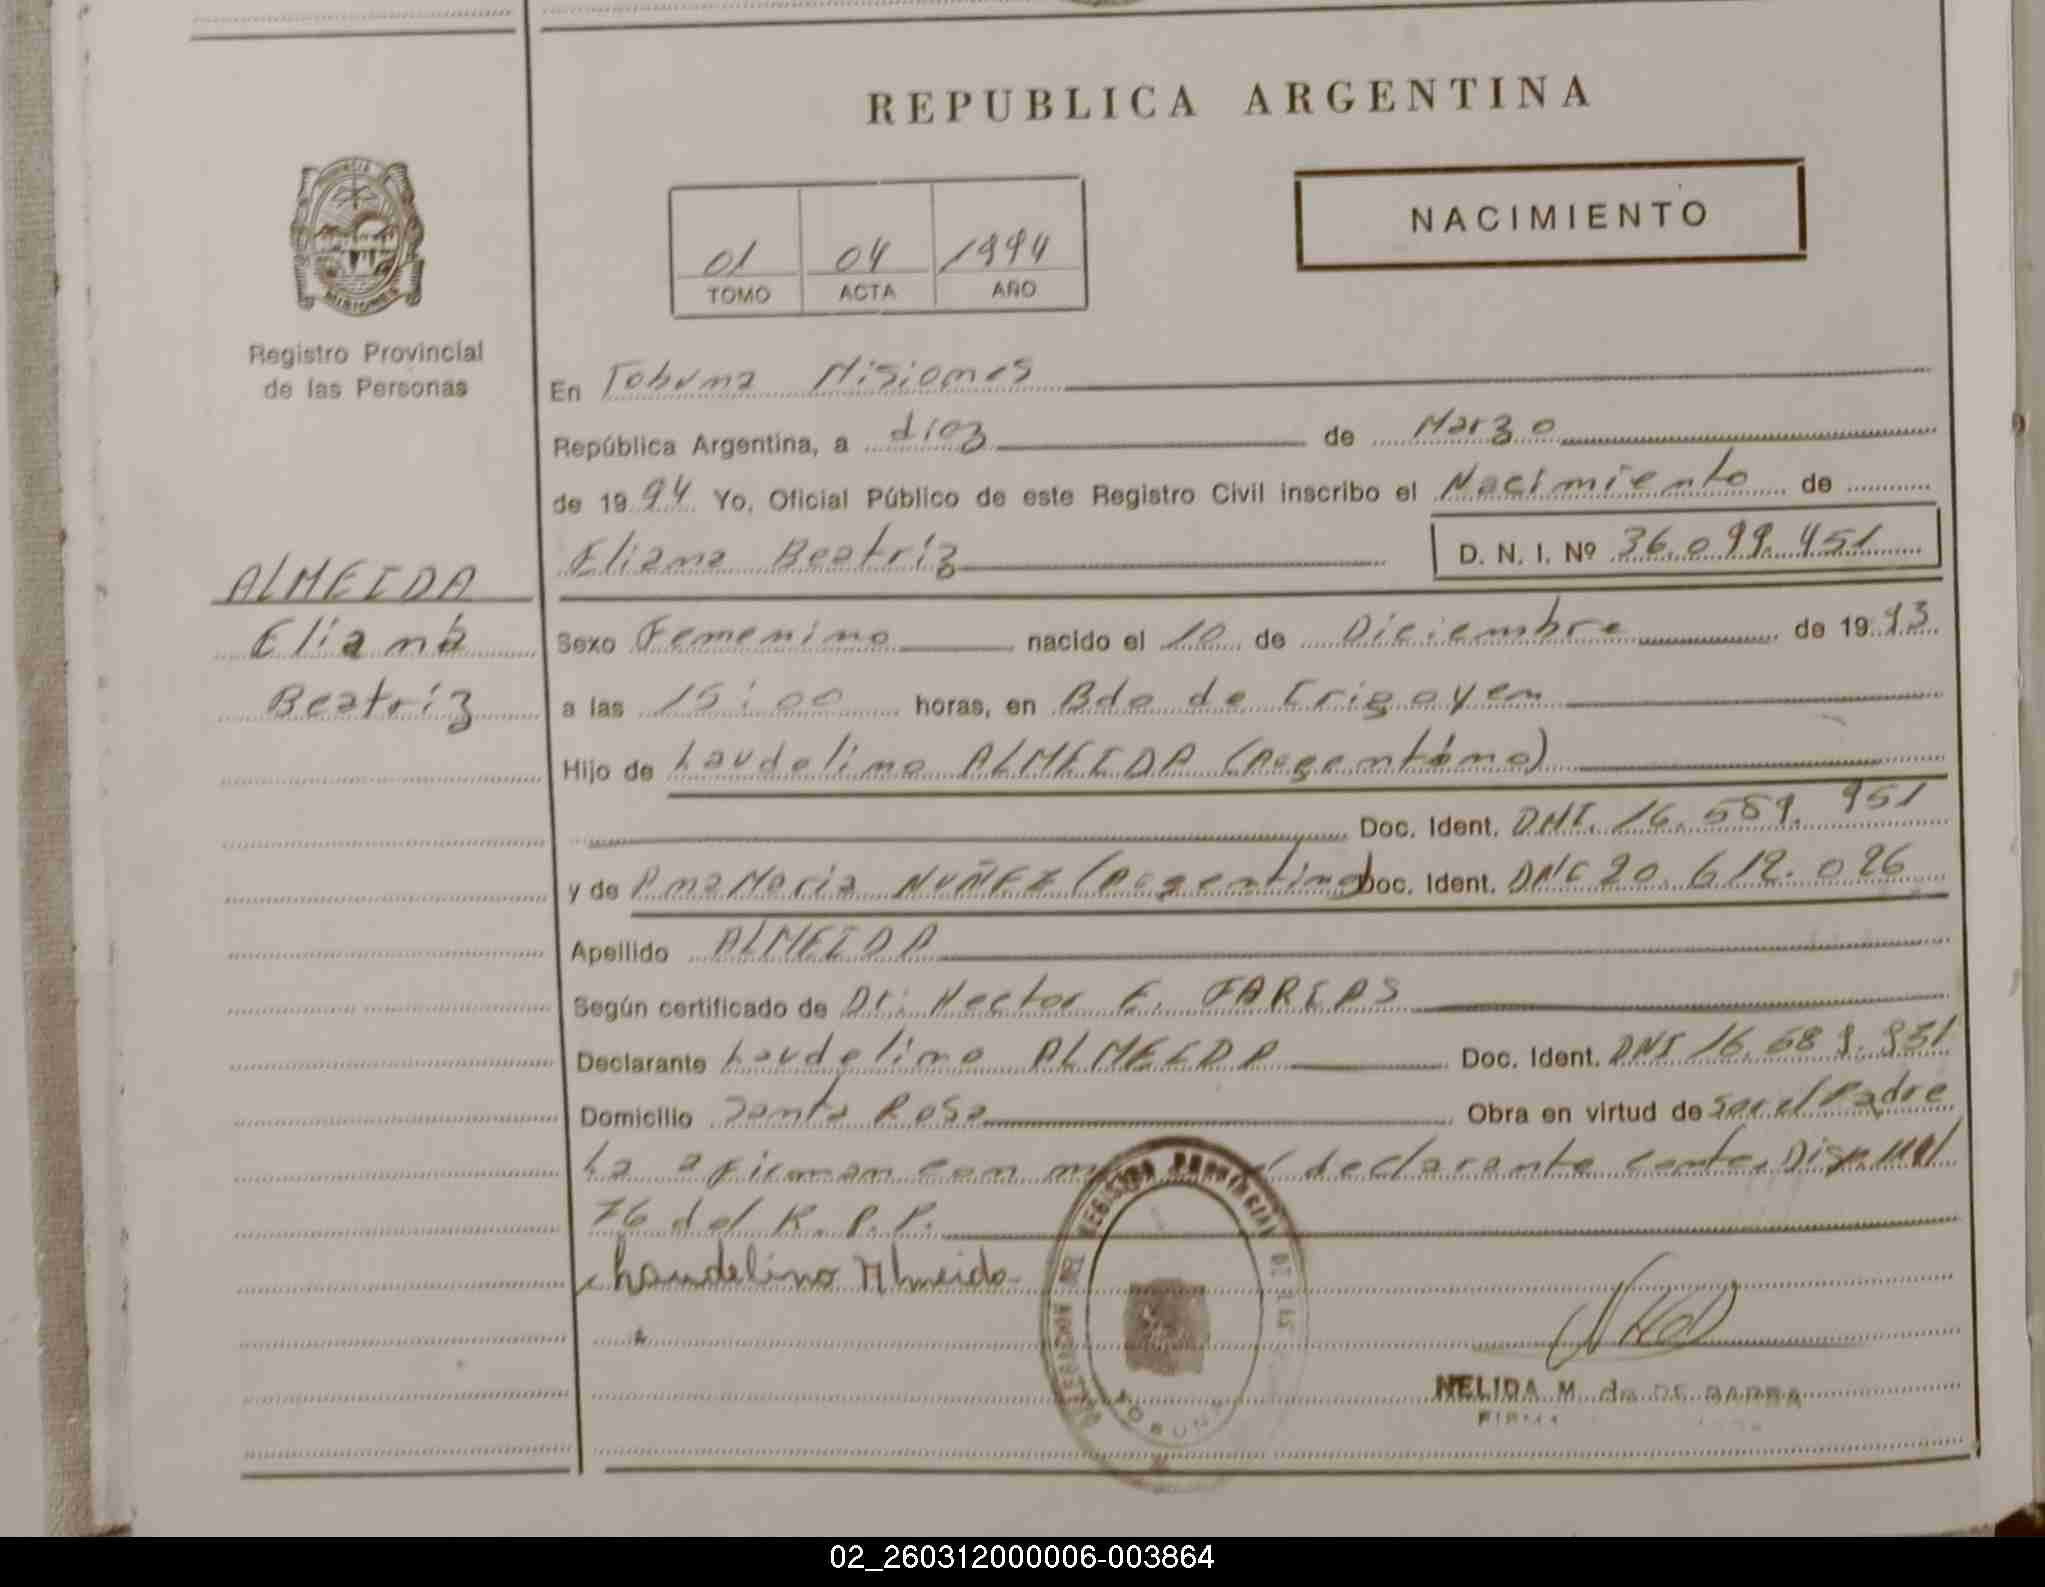 REPUBLICA ARGENTINA
NACIMIENTO
01 04 1994
TOMO ACTA AÑO
PROVINCIA
MISIONES
Registro Provincial
de las Personas
En Tobuna Misiones
República Argentina, a diez de Marzo
de 1994 Yo, Oficial Público de este Registro Civil inscribo el Nacimiento de
Eliana Beatríz D. N. I. Nº 36.099.451
ALMEIDA
Eliana
Beatríz
Sexo Femenino nacido el 10 de Diciembre de 1993
a las 15:00 horas, en Bdo de Irigoyen
Hijo de Laudelino ALMEIDA (Argentino)
Doc. Ident. DNI. 16.589.951
y de Ana Maria NUÑEZ (Argentina) Doc. Ident. DNI 20.612.026
Apellido ALMEIDA
Según certificado de Dr. Hector F. FARIAS
Declarante Laudelino ALMEIDA Doc. Ident. DNI 16.589.951
Domicilio Santa Rosa Obra en virtud de Ser el Padre
La a firman con declarante conte.
76 del R.P.P.
Laudelino Almeida
REGISTRO PROVINCIAL DE LAS
TOBUNA
NELIDA M. de DE BARBA